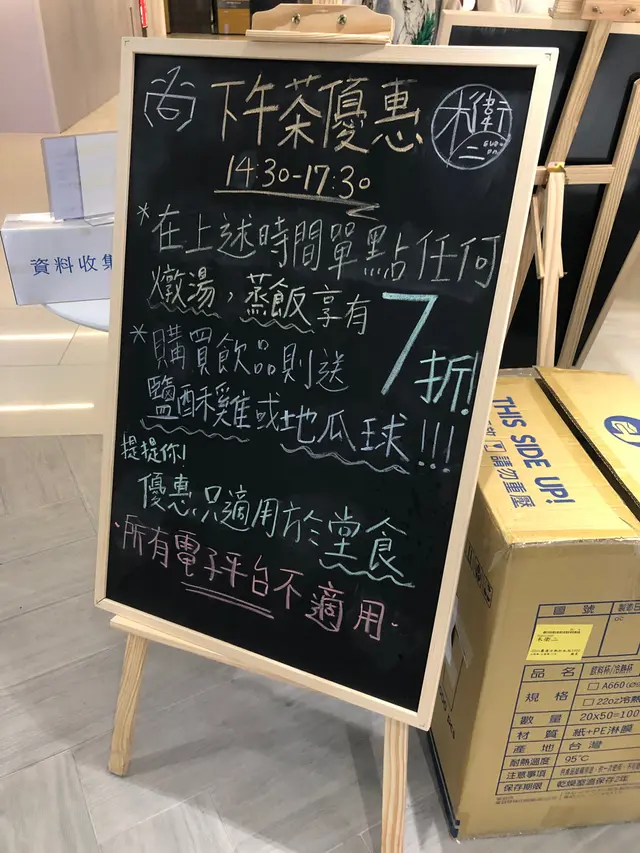 尚
下午茶優惠
木衛二
14:30-17:30
*在上述時間單點任何
燉湯，蒸飯享有
7折!
*購買飲品則送
鹽酥雞或地瓜球!!!
提提你!
優惠只適用於堂食
·所有電子平台不適用·
資料收集
THIS SIDE UP!
請勿重壓
圖號
品名 飲料杯/冷熱杯
規格 □A660
□22oz冷熱
數量 20x50=100
材質 紙+PE淋膜
產地 台灣
耐熱溫度 95℃
注意事項
保存期限 乾燥室溫保存2年